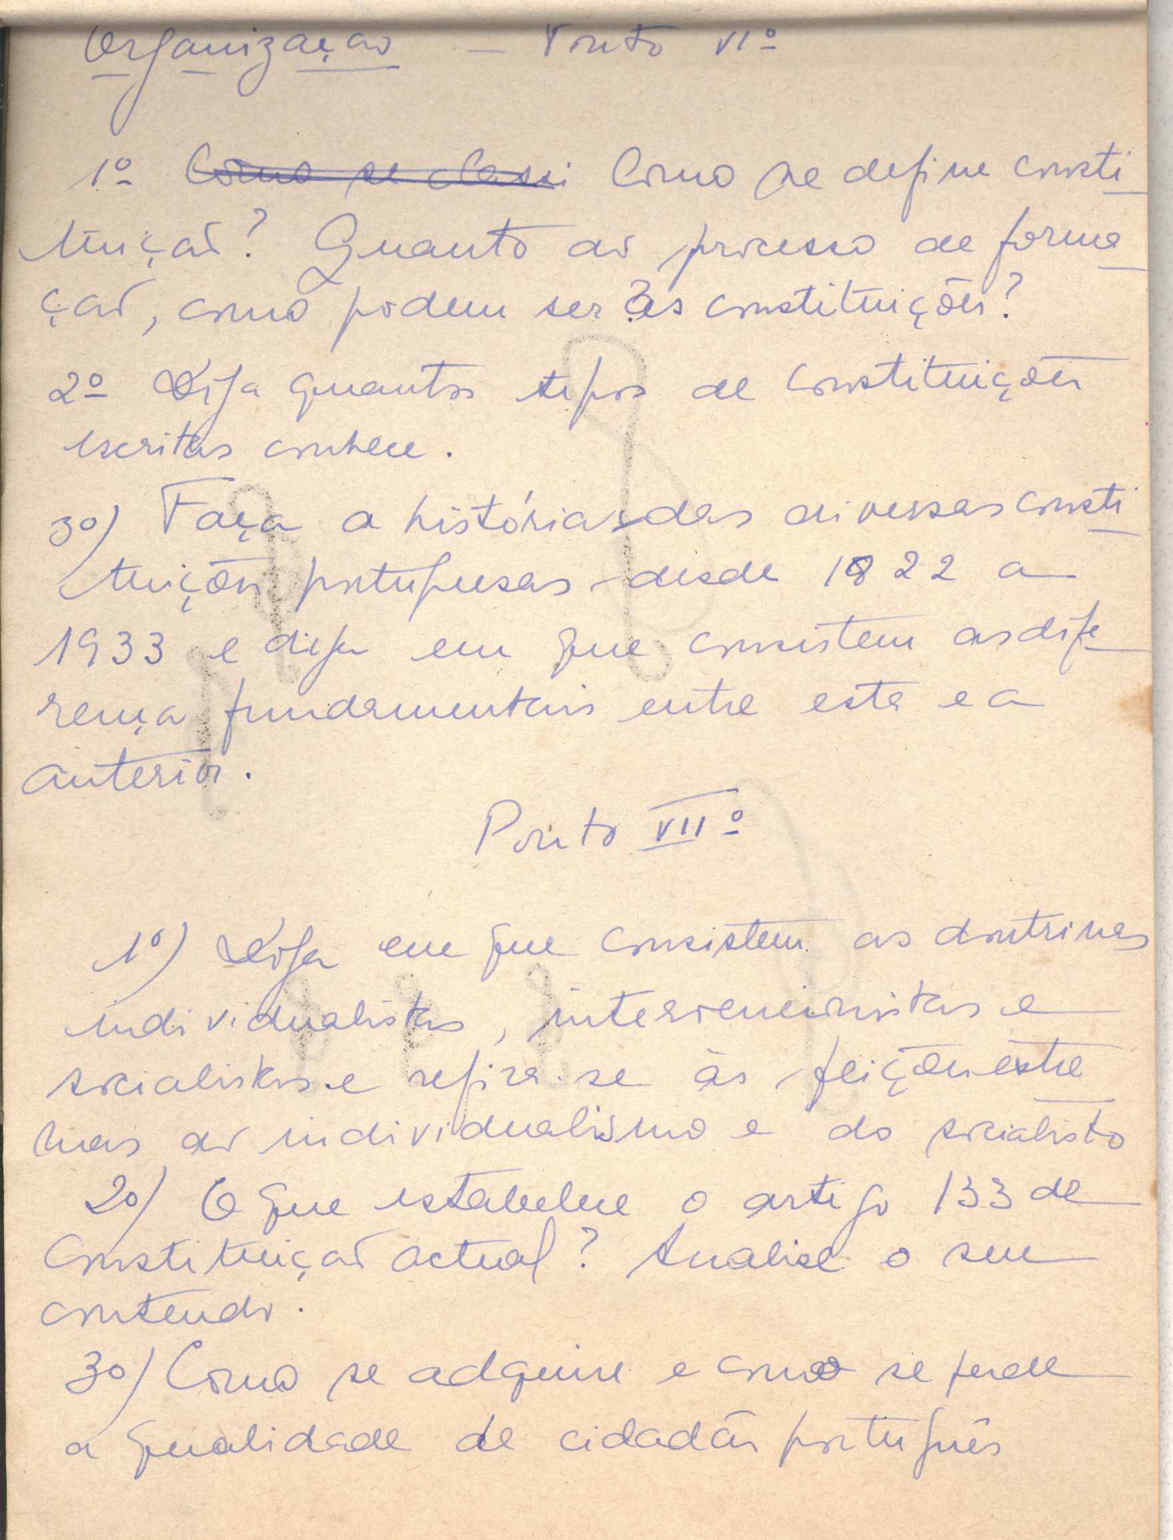 Organização — Ponto VIº
1º Como se classi Como se define consti
tuição? Quanto ao processo de forma
ção, como podem ser as constituições?
2º Diga quantos tipos de constituições
escritas conhece.
3º) Faça a história das diversas consti
tuições portuguesas desde 1822 a
1933 e diga em que consistem as dife
rença fundamentais entre esta e a
anterior.
Ponto VIIº
1º) Diga em que consistem as doutrinas
individualistas, intervencionistas e
socialistas e refira-se às feições extre
mas do individualismo e do socialisto
2º) O que estabelece o artigo 133 da
Constituição actual? Analise o seu
conteudo.
3º) Como se adquire e como se perde
a qualidade de cidadão português